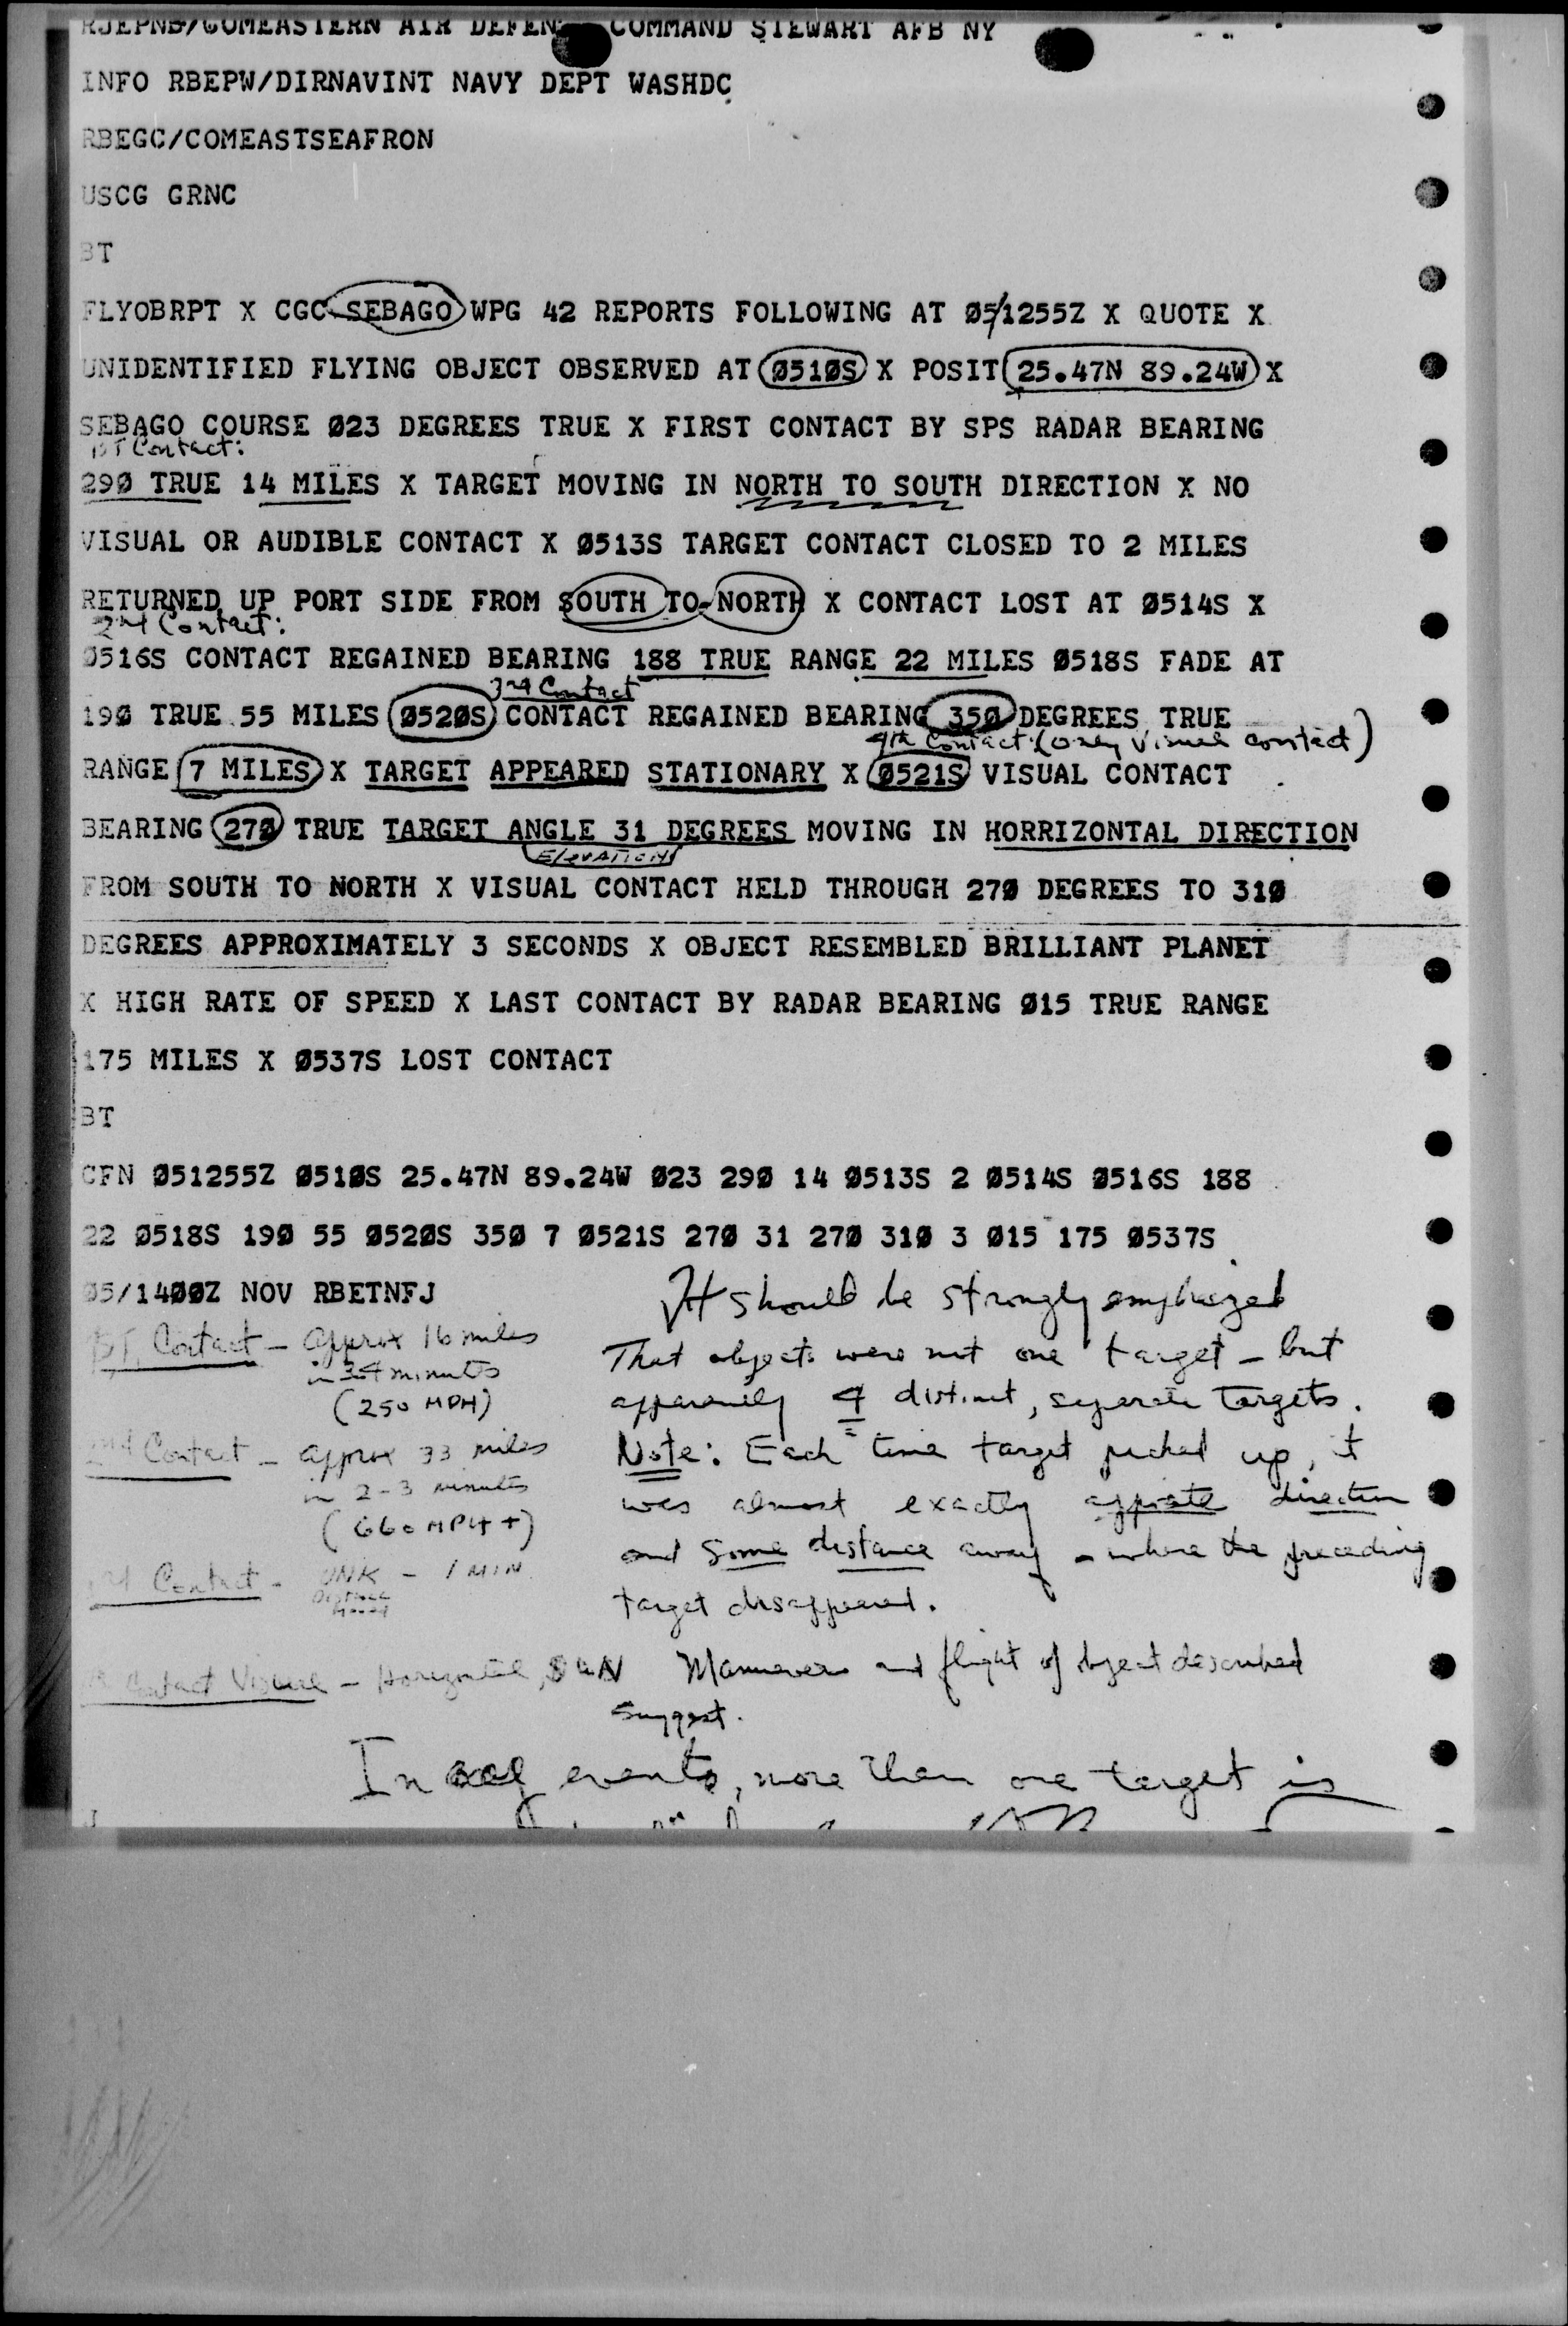 RJEPNB/COMEASTERN AIR DEFEN COMMAND STEWART AFB NY
INFO RBEPW/DIRNAVINT NAVY DEPT WASHDC
RBEGC/COMEASTSEAFRON
USCG GRNC
BT
FLYOBRPT X CGC SEBAGO WPG 42 REPORTS FOLLOWING AT Ø5/1255Z X QUOTE X
UNIDENTIFIED FLYING OBJECT OBSERVED AT Ø51ØS X POSIT 25.47N 89.24W X
SEBAGO COURSE Ø23 DEGREES TRUE X FIRST CONTACT BY SPS RADAR BEARING
1ST Contact:
29Ø TRUE 14 MILES X TARGET MOVING IN NORTH TO SOUTH DIRECTION X NO
VISUAL OR AUDIBLE CONTACT X Ø513S TARGET CONTACT CLOSED TO 2 MILES
RETURNED UP PORT SIDE FROM SOUTH TO NORTH X CONTACT LOST AT Ø514S X
2nd Contact:
Ø516S CONTACT REGAINED BEARING 188 TRUE RANGE 22 MILES Ø518S FADE AT
3rd Contact
19Ø TRUE 55 MILES Ø52ØS CONTACT REGAINED BEARING 35Ø DEGREES TRUE
4th Contact: (only visual contact)
RANGE 7 MILES X TARGET APPEARED STATIONARY X Ø521S VISUAL CONTACT
BEARING 27Ø TRUE TARGET ANGLE 31 DEGREES MOVING IN HORRIZONTAL DIRECTION
ElevATION
FROM SOUTH TO NORTH X VISUAL CONTACT HELD THROUGH 27Ø DEGREES TO 31Ø
DEGREES APPROXIMATELY 3 SECONDS X OBJECT RESEMBLED BRILLIANT PLANET
X HIGH RATE OF SPEED X LAST CONTACT BY RADAR BEARING Ø15 TRUE RANGE
175 MILES X Ø537S LOST CONTACT
BT
CFN Ø51255Z Ø51ØS 25.47N 89.24W Ø23 29Ø 14 Ø513S 2 Ø514S Ø516S 188
22 Ø518S 19Ø 55 Ø52ØS 35Ø 7 Ø521S 27Ø 31 27Ø 31Ø 3 Ø15 175 Ø537S
Ø5/14ØØZ NOV RBETNFJ
1ST Contact - approx 16 miles
in 3-4 minutes
(250 MPH)
2nd Contact - approx 33 miles
in 2-3 minutes
(660 MPH +)
3rd Contact - UNK - 1 MIN
Distance
Moved
Contact Visual - Horizontal, S to N
It should be strongly emphasized
That objects were not one target - but
apparently 4 distinct, separate targets.
Note: Each time target picked up, it
was almost exactly opposite direction
and some distance away - where the preceding
target disappeared.
Manuevers and flight of object described
suggest.
In events, more than one target is